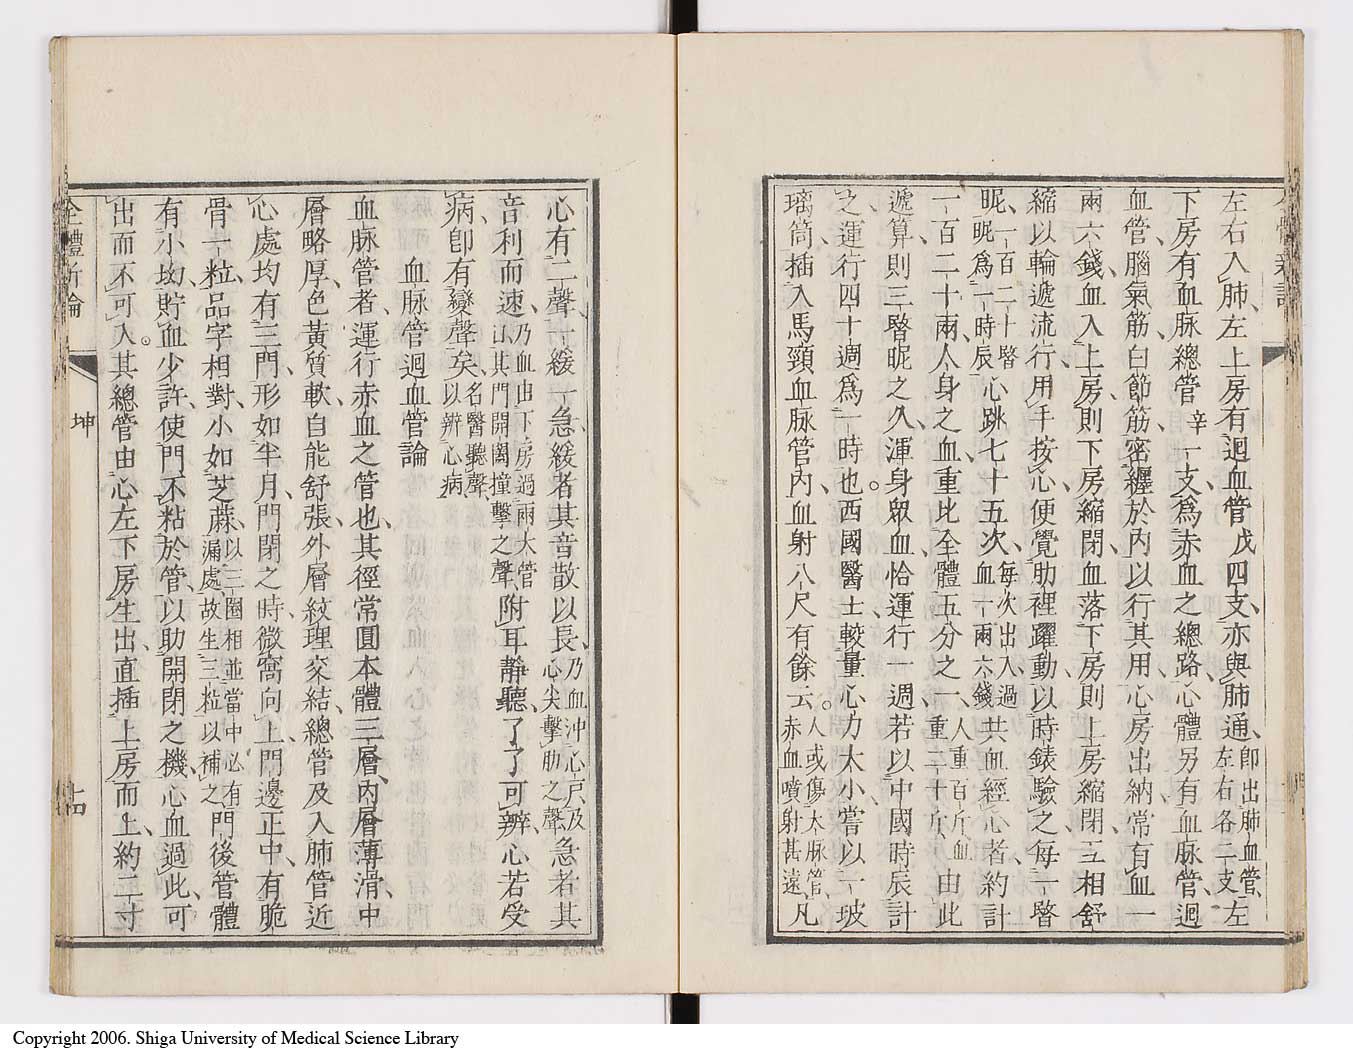 左右入肺、左上房有迴血管戊四支、亦與肺通、即出肺血管、左右各二支左
下房有血脉總管辛一支、爲赤血之總路、心體另有血脉管、迴
血管、腦氣筋、白節筋、密纏於內、以行其用、心房出納、常有血一
兩六錢、血入上房、則下房縮閉、血落下房、則上房縮閉、互相舒
縮、以輪遞流行、用手按心、便覺肋裡躍動、以時錶驗之、每一晷
昵、一百二十晷昵爲一時辰心跳七十五次、每次出入過血一兩六錢共血經心者、約計
一百二十兩、人身之血、重比全體五分之一、人重百斤、血重二十斤、由此
遞算、則三晷昵之久、渾身眾血、恰運行一週、若以中國時辰計
之、運行四十週爲一時也。西國醫士、較量心力大小、嘗以一玻
璃筒、插入馬頸血脉管內、血射八尺有餘云。人或傷大脉管、赤血噴射甚遠凡
心有二聲、一緩一急、緩者其音散以長、乃血沖心戶及心尖擊肋之聲急者其
音利而速、乃血由下房過兩大管以其門開闔撞擊之聲附耳靜聽、了了可辨、心若受
病、卽有變聲矣、名醫聽聲以辨心病
血脉管迴血管論
血脉管者、運行赤血之管也、其徑常圓、本體三層、內層薄滑、中
層略厚、色黃質軟、自能舒張、外層紋理交結、總管及入肺管近
心處、均有三門、形如半月、門閉之時、微窩向上、門邊正中、有脆
骨一粒、品字相對、小如芝蔴、以三圈相並當中必有漏處、故生三粒以補之門後管體
有小坳、貯血少許、使門不粘於管、以助開閉之機、心血過此、可
出而不可入。其總管由心左下房生出、直插上房而上、約二寸
全體新論
坤
十四